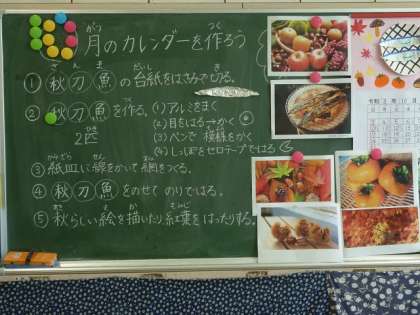 10月のカレンダーを作ろう
①秋刀魚の台紙をはさみで切る。
②秋刀魚を作る。(1)アルミをまく
(2)目をはる
2匹
(3)ペンで模様をかく
(4)しっぽをセロテープではる
③紙皿に線をかいて網をつくる。
④秋刀魚をのせて のりではる。
⑤秋らしい絵を描いたり紅葉をはったりする。